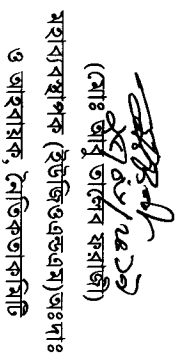 (মোঃ আবু তালেব ফরাজী)
মহাব্যবস্থাপক (ইউজিওএন্ডএম)অঃদাঃ
ও আহবায়ক, নৈতিকতাকমিটি